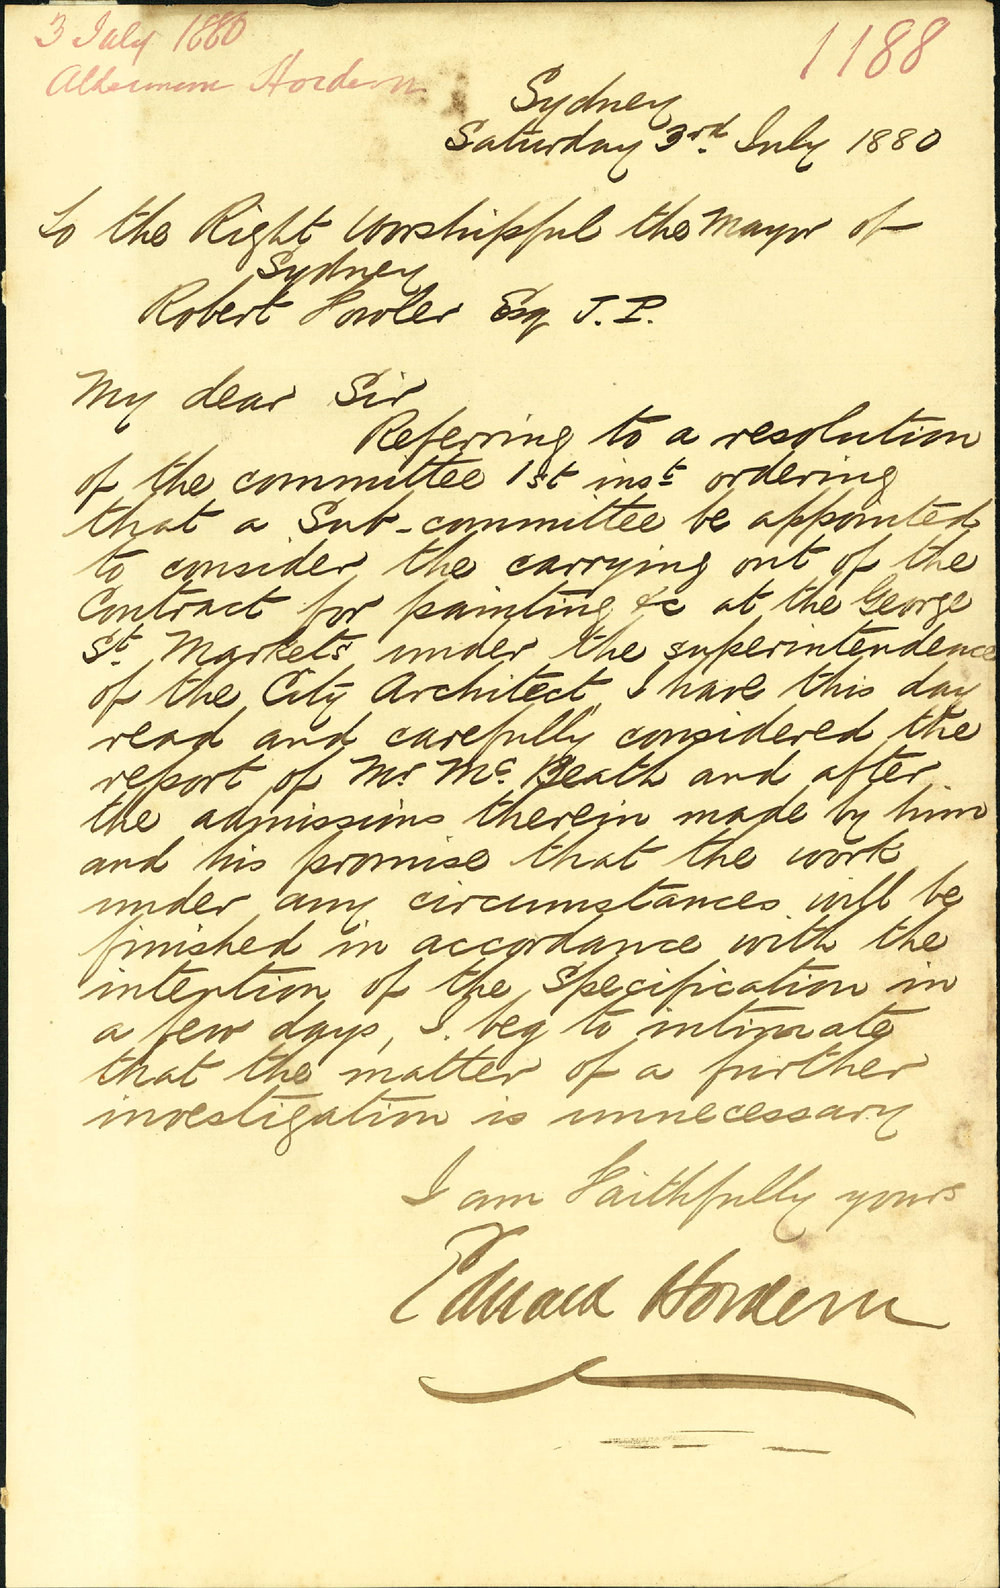 3 July 1880
Alderman Hordern
1188
Sydney
Saturday 3rd. July 1880
To the Right Worshipful the Mayor of
Sydney
Robert Fowler Esq J.P.
My dear Sir
Referring to a resolution
of the committee 1st inst ordering
that a Sub-committee be appointed
to consider the carrying out of the
Contract for painting &c at the George
St. Markets under the superintendence
of the City Architect, I have this day
read and carefully considered the
report of Mr Mc. Beath and after
the admissions therein made by him
and his promise that the work
under any circumstances will be
finished in accordance with the
intention of the Specification in
a few days, I beg to intimate
that the matter of a further
investigation is unnecessary
I am Faithfully yours
Edward Hordern